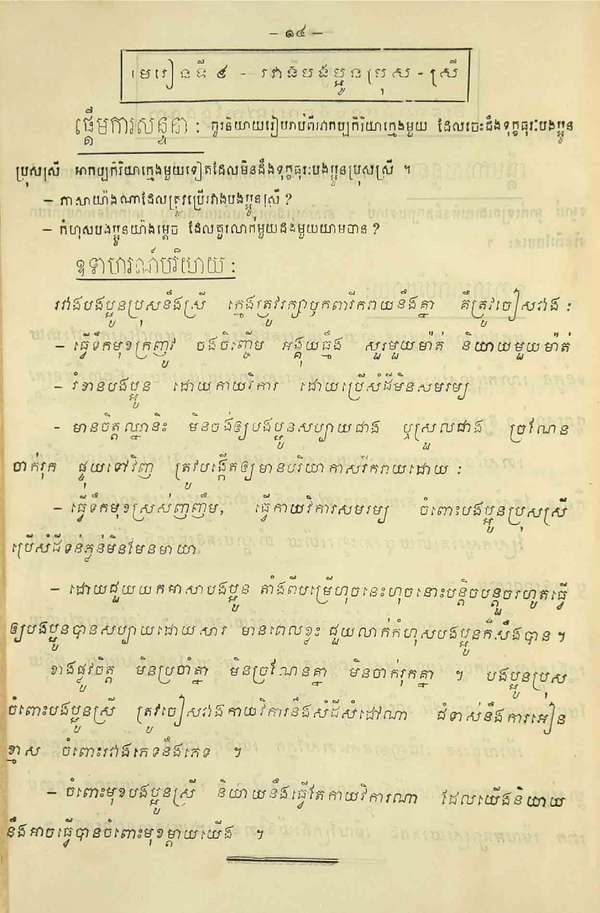 – ១៤ –
មេរៀនទី ៤ - រវាងបងប្អូនប្រុស - ស្រី
ផ្តើមការសន្ទនា : គួរនិយាយរៀបរាប់ពីអាកប្បកិរិយាក្មេងមួយ ដែលចេះដឹងទុក្ខធុរៈបងប្អូន
ប្រុសស្រី អាកប្បកិរិយាក្មេងមួយទៀតដែលមិនដឹងទុក្ខធុរៈបងប្អូនប្រុសស្រី ។
– ភាសាយ៉ាងណាដែលត្រូវប្រើរវាងបងប្អូនស្រី ?
– កំហុសបងប្អូនយ៉ាងម្តេច ដែលគួរលាក់មួយដងមួយយាមបាន ?
ឧទាហរណ៍បរិយាយ :
រវាងបងប្អូនប្រុសនឹងស្រី ក្មេងត្រូវរក្សាឫកពារីករាយនឹងគ្នា គឺត្រូវចៀសវាង :
– ធ្វើទឹកមុខក្រញូវ ចងចិញ្ចើម អង្គុយធ្មឹង សួរមួយម៉ាត់ និយាយមួយម៉ាត់
– រំខានបងប្អូន ដោយកាយវិការ ដោយប្រើសំដីមិនសមរម្យ
– មានចិត្តឈ្នានីះ មិនចង់ឲ្យបងប្អូនសប្បាយជាង ឬស្រួលជាង ច្រណែន
ចាក់រុក ផ្ទុយទៅវិញ ត្រូវបង្កើតឲ្យមានបរិយាកាសរីករាយដោយ :
– ធ្វើទឹកមុខស្រស់ញញឹម, ធ្វើកាយវិការសមរម្យ ចំពោះបងប្អូនប្រុសស្រី
ប្រើសំដីទន់ភ្លន់មិនមែនមាយា
– ដោយជួយយកអាសាបងប្អូន តាំងពីបម្រើហុចនេះហុចនោះបន្តិចបន្តួចរហូតធ្វើ
ឲ្យបងប្អូនបានសប្បាយដោយសារ មានពេលខ្លះ ជួយលាក់កំហុសបងប្អូនក៏សឹងបាន ។
ខាងផ្លូវចិត្ត មិនប្រចាំគ្នា មិនច្រណែនគ្នា មិនចាក់រុកគ្នា ។ បងប្អូនប្រុស
ចំពោះបងប្អូនស្រី ត្រូវចៀសវាងកាយវិការនឹងសំដីសំដៅណា ជំទាស់នឹងការអៀន
ខ្មាស ចំពោះរវាងភេទនឹងភេទ ។
– ចំពោះមុខបងប្អូនស្រី និយាយនឹងធ្វើតែកាយវិការណា ដែលយើងនិយាយ
នឹងអាចធ្វើបានចំពោះមុខម្តាយយើង ។